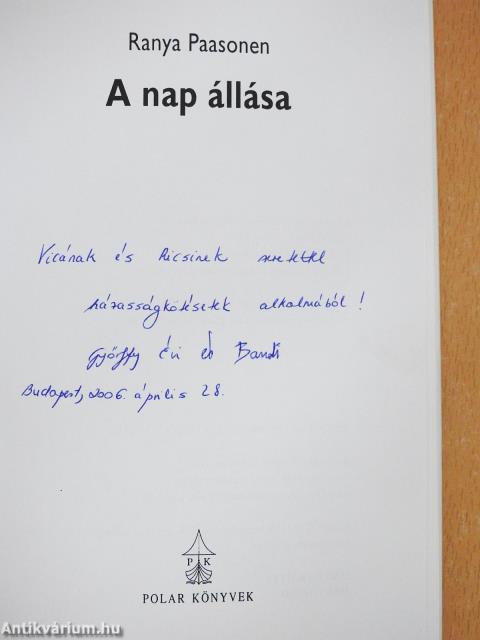 Ranya Paasonen
A nap állása
Vicának és Ricsinek szeretettel
házasságkötésetek alkalmából!
Győrffy Évi és Bandi
Budapest, 2006. április 28.
P K
POLAR KÖNYVEK
Antikvárium.hu